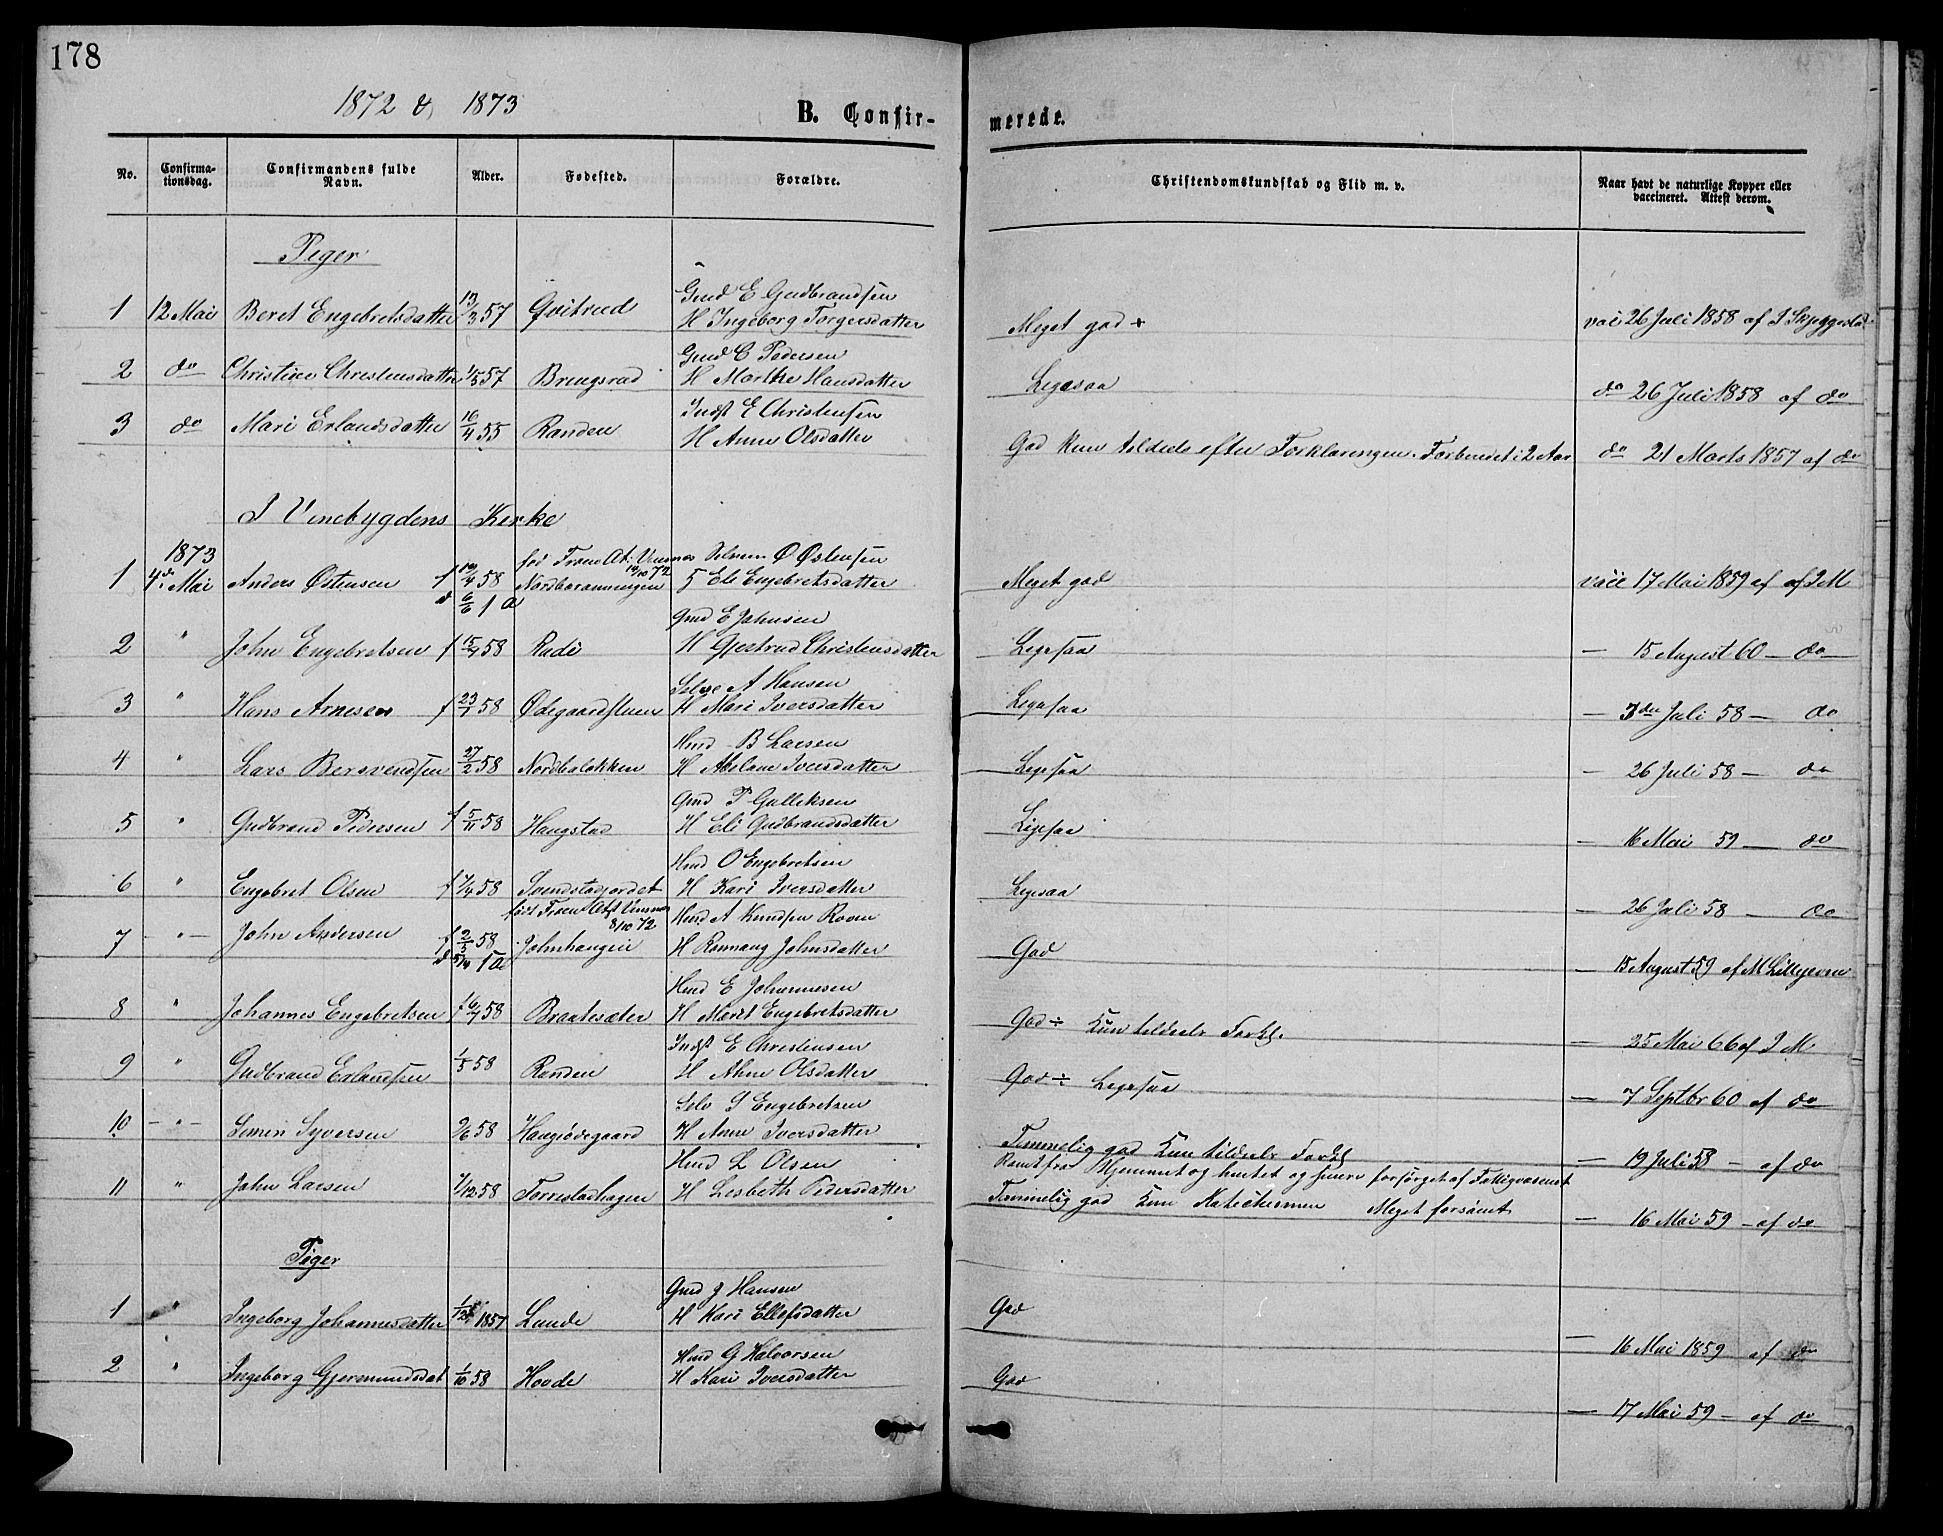 178
1872 & 1873
B. Confir-
merede.
No.
Confirma-
tionsdag.
Confirmandens fulde
Navn.
Alder.
Fødested.
Forældre.
Christendomskundskab og Flid m. v.
Naar havt de naturlige Kopper eller
vaccineret. Attest derom.
Piger
Gmd E Gudbrandsen
1 12 Mai Beret Engebretsdatter 13/3 57 Qvitrud H Ingeborg Torgersdatter Meget god + vac 26 Juli 1858 af
Gmd C Pedersen
2 do Christine Christensdatter 1/5 57 Brengsrud H Marthe Hansdatter Ligesaa do 26 Juli 1858 af do
Indst E Christensen
3 do Mari Erlandsdatter 16/4 55 Randen H Anne Olsdatter God kun tildeels efter Forklaringen. Forberedt i 2 Aar do 21 Marts 1857 af do
I Venebygdens Kirke
1873
Ø Østensen
1 4de Mai Anders Østensen f 19/4 58 5 Eli Engebretsdatter Meget god vacc 17 Mai 1859 af af I M
d 6/6 1 a
Gmd E Johnsen
2 " John Engebretsen f 15/7 58 Rudi H Gjertrud Christensdatter Ligesaa — 15 August 60 — do
A Hansen
3 " Hans Arnesen f 23/7 58 Ødegaardstuen H Mari Iversdatter Ligesaa — 3die Juli 58 — do
Hmd B Larsen
4 " Lars Bersvendsen 27/2 58 Nordbaløkken H Iversdatter Ligesaa — 26 Juli 58 — do
Gmd P Gulliksen
5 " Gudbrand Pedersen f 5/11 58 Haugstad H Eli Gudbrandsdatter Ligesaa — 16 Mai 59 — do
Hmd O Engebretsen
6 " Engebret Olsen f 7/4 58 Svendstadjordet H Kari Iversdatter Ligesaa — 26 Juli 58 — do
8/10 72 Hmd A Knudsen
7 - " - John Andersen f 2/5 58 Johnhaugen H Rønnaug Johnsdatter God — 15 August 59 af M
Hmd E Johannesen
8 " Johannes Engebretsen f 58 Braatesæter H Marit Engebretsdatter God ÷ Kun tildeels Forkl. — 25 Mai 66 af I M
Indst E Christensen
9 " Gudbrand Erlandsen 1/5 58 Randen H Anne Olsdatter God ÷ Ligesaa — 7 Septbr 60 af do
Selv S Engebretsen
10 - " - Simen Syversen 58 Haugødegaard H Anne Iversdatter Temmelig god Kun tildeels Forkl — 19 Juli 58 — af do
Hmd L Olsen Hjemmet og og senere forsørget af Fattigvæsenet
11 " John Larsen 7/12 58 Torrestadhagen H Lisbeth Pedersdatter Temmelig god Kun Katechismen Meget forsømt — 16 Mai 59 — af do
Piger
Gmd J Hansen
1 " Ingeborg Johannesdatter 1/12 1857 Lunde H Kari Ellefsdatter God — 16 Mai 1859 af do
Hmd G Halvorsen
2 " Ingeborg Gjermundsdat 1/10 58 Hovde H Kari Iversdatter God — 17 Mai 59 — af do